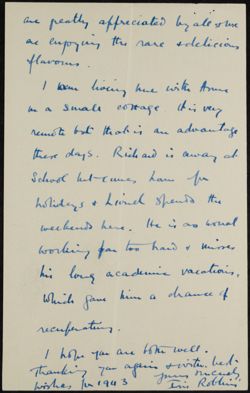 are greatly appreciated by all & we
are enjoying the rare & delicious
flavours.
I am living here with Anne
in a small cottage it is very
remote but that is an advantage
these days. Richard is away at
School but comes home for
holidays & Lionel spends the
weekends here. He is as usual
working far too hard & misses
his long academic vacations,
which gave him a chance of
recuperating.
I hope you are both well.
Thanking you again & with best
wishes for 1943 yours sincerely,
Iris Robbins